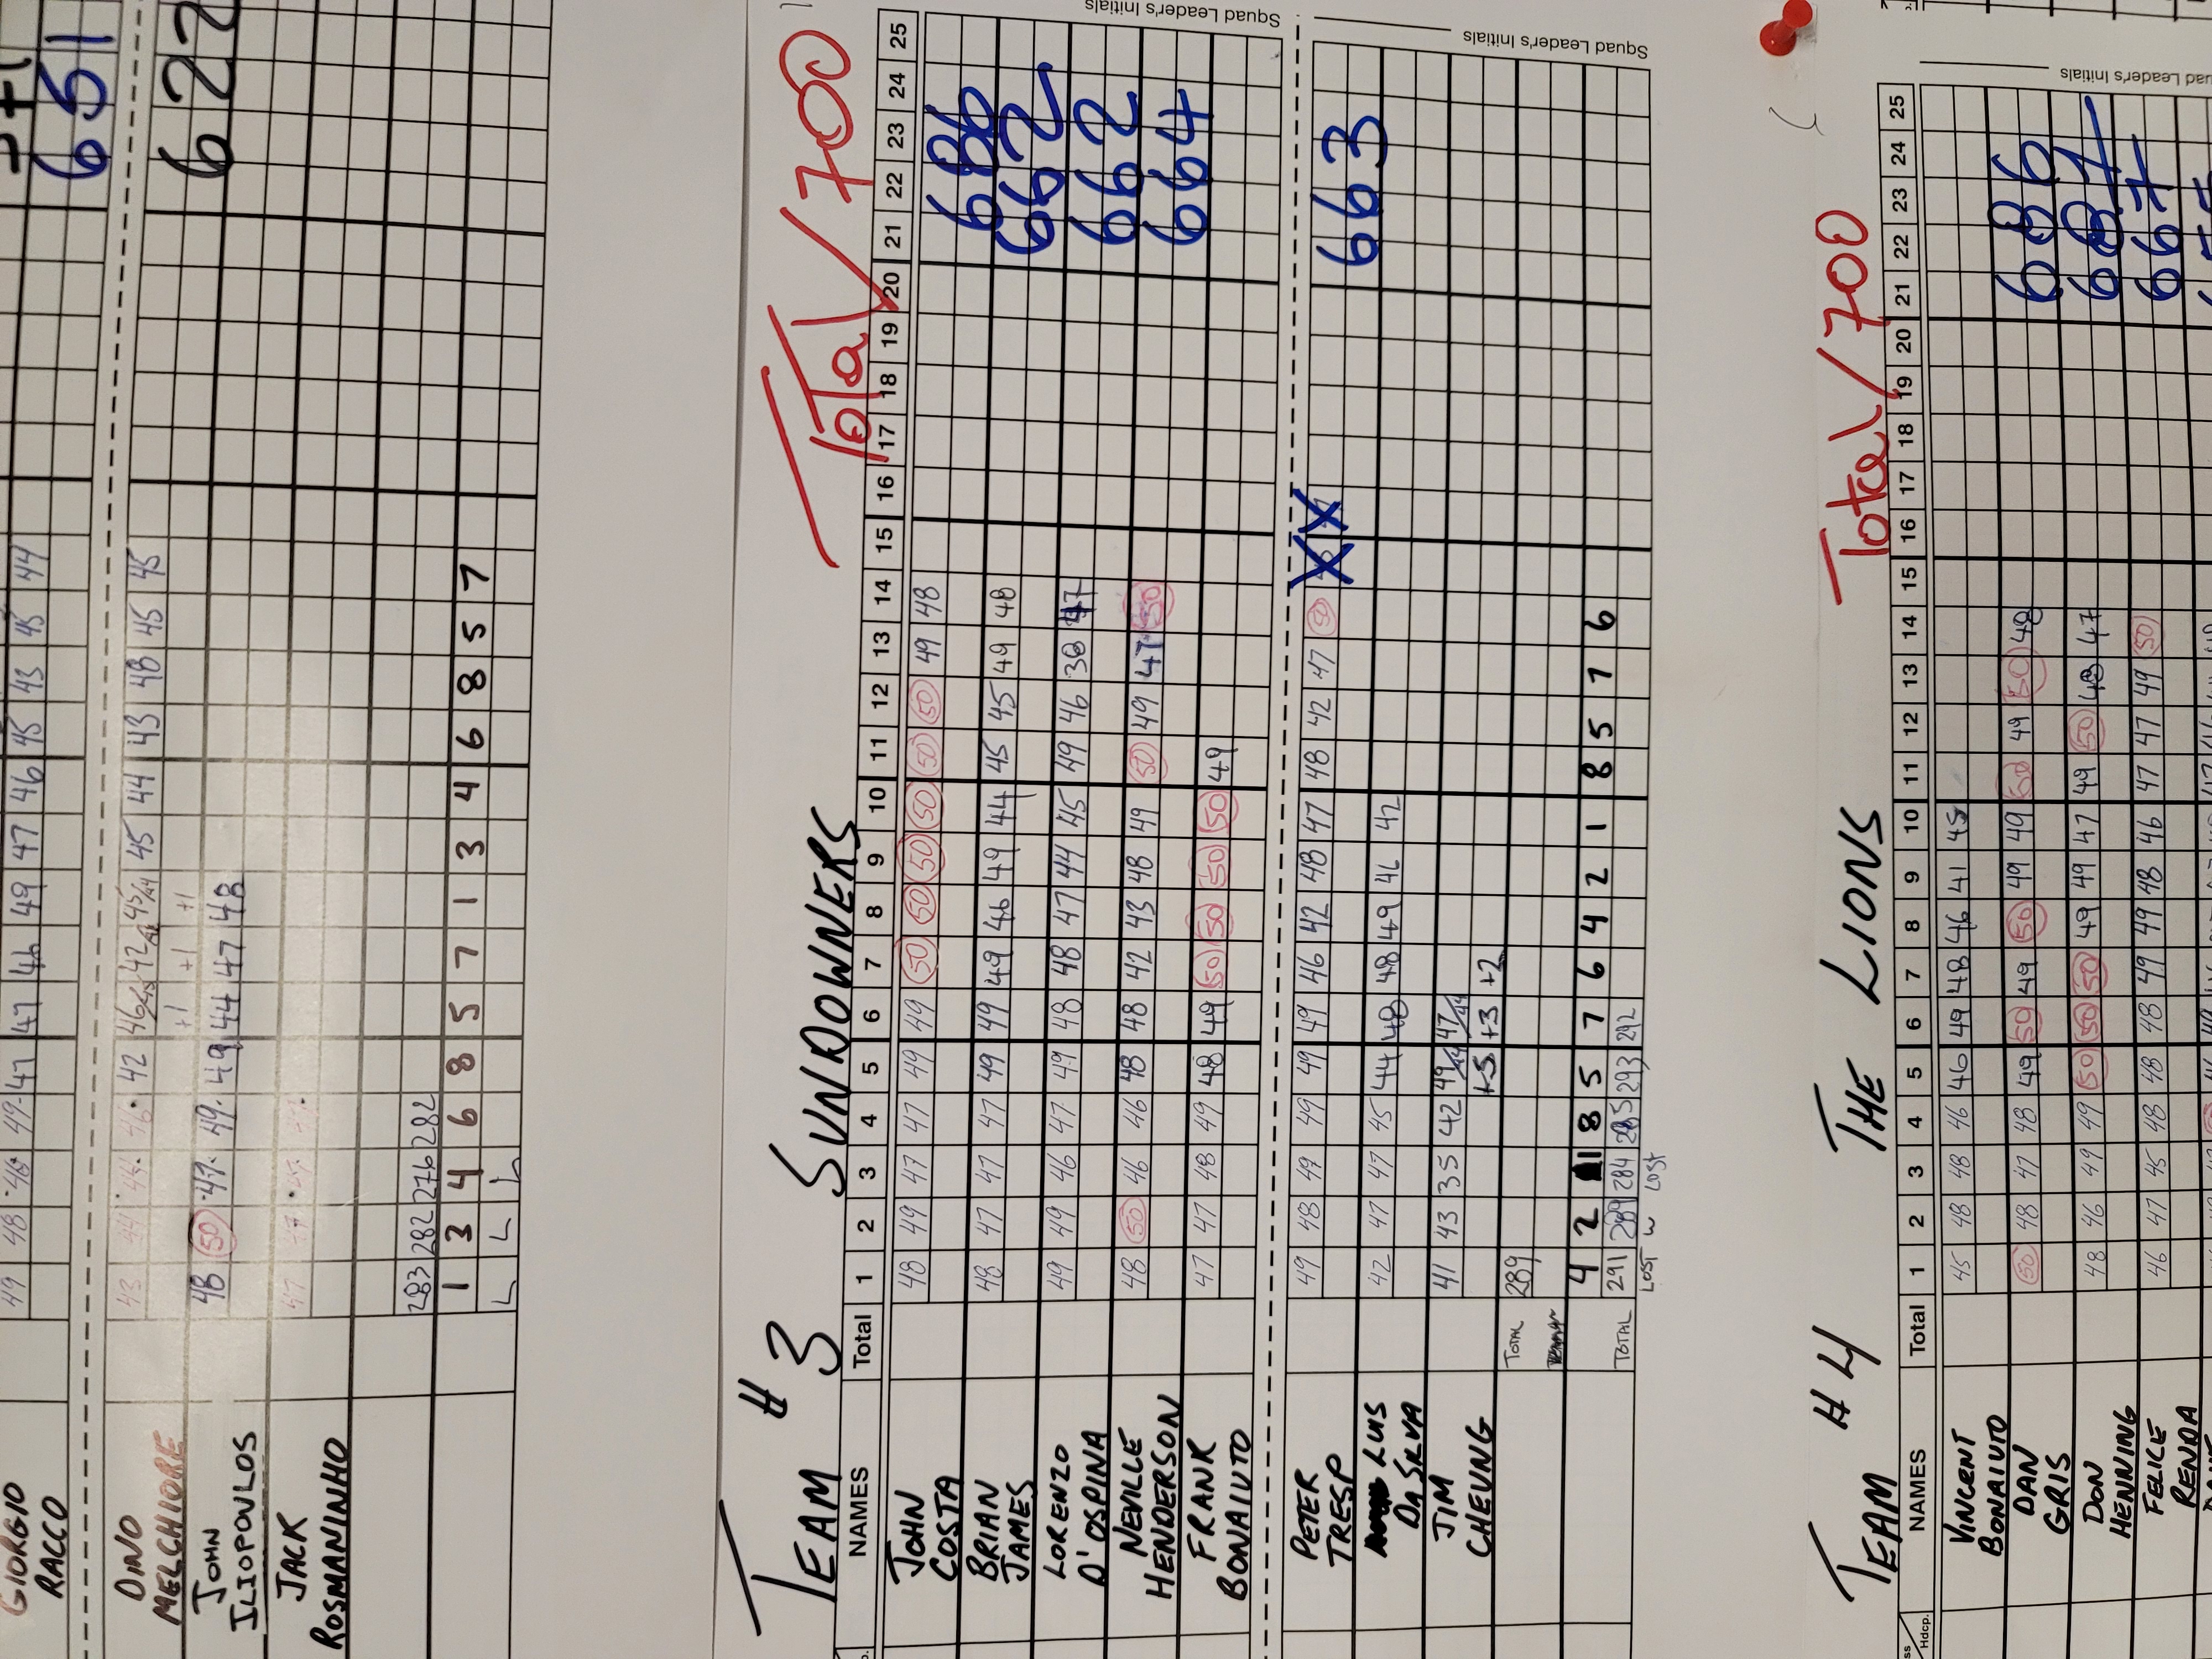 651
GIORGIO RACCO 49 48 48 49 47 47 46 49 47 46 45 43 45 44
622
DINO MELCHIORE 43 44 44 46 42 46 42 45 45 44 43 48 45 45
+1 +1 +1
JOHN ILIOPOULOS 48 50 47 49 49 44 47 48
JACK ROSMANINHO 47
283 282 276 282
1 3 4 6 8 5 7 1 3 4 6 8 5 7
L L L
TEAM #3 SUNDOWNERS Total/700
NAMES Total 1 2 3 4 5 6 7 8 9 10 11 12 13 14 15 16 17 18 19 20 21 22 23 24 25
JOHN COSTA 48 49 47 47 49 49 50 50 50 50 50 50 49 48 686
BRIAN JAMES 48 47 47 47 49 49 49 46 49 44 45 45 49 48 662
LORENZO D'OSPINA 49 49 46 47 49 48 48 47 44 45 49 46 38 47 662
NEVILLE HENDERSON 48 50 46 46 48 48 42 43 48 49 50 49 47 50 664
FRANK BONAIUTO 47 47 48 49 48 49 50 50 50 50 49
Squad Leader's Initials
PETER TRESP 49 48 49 49 49 49 46 42 48 47 48 42 47 50 X X 663
LUIS DA SILVA 42 47 47 45 44 48 48 49 46 42
JIM CHEUNG 41 43 35 42 49/44 47/44
+5 +3 +2
TOTAL 289
4 2 1 8 5 7 6 4 2 1 8 5 7 6
TOTAL 291 289 284 285 293 292
LOST W LOST
Squad Leader's Initials
TEAM #4 THE LIONS Total/700
NAMES Total 1 2 3 4 5 6 7 8 9 10 11 12 13 14 15 16 17 18 19 20 21 22 23 24 25
VINCENT BONAIUTO 45 48 48 46 46 49 48 46 41 45
DAN GRIS 50 48 47 48 49 50 49 50 49 49 50 49 50 48 686
DON HENNING 48 46 49 49 50 50 50 49 49 47 49 50 48 47 681
FELICE RENDA 46 47 45 48 48 48 49 49 48 46 47 47 49 50 667
Squad Leader's Initials
Hdcp.